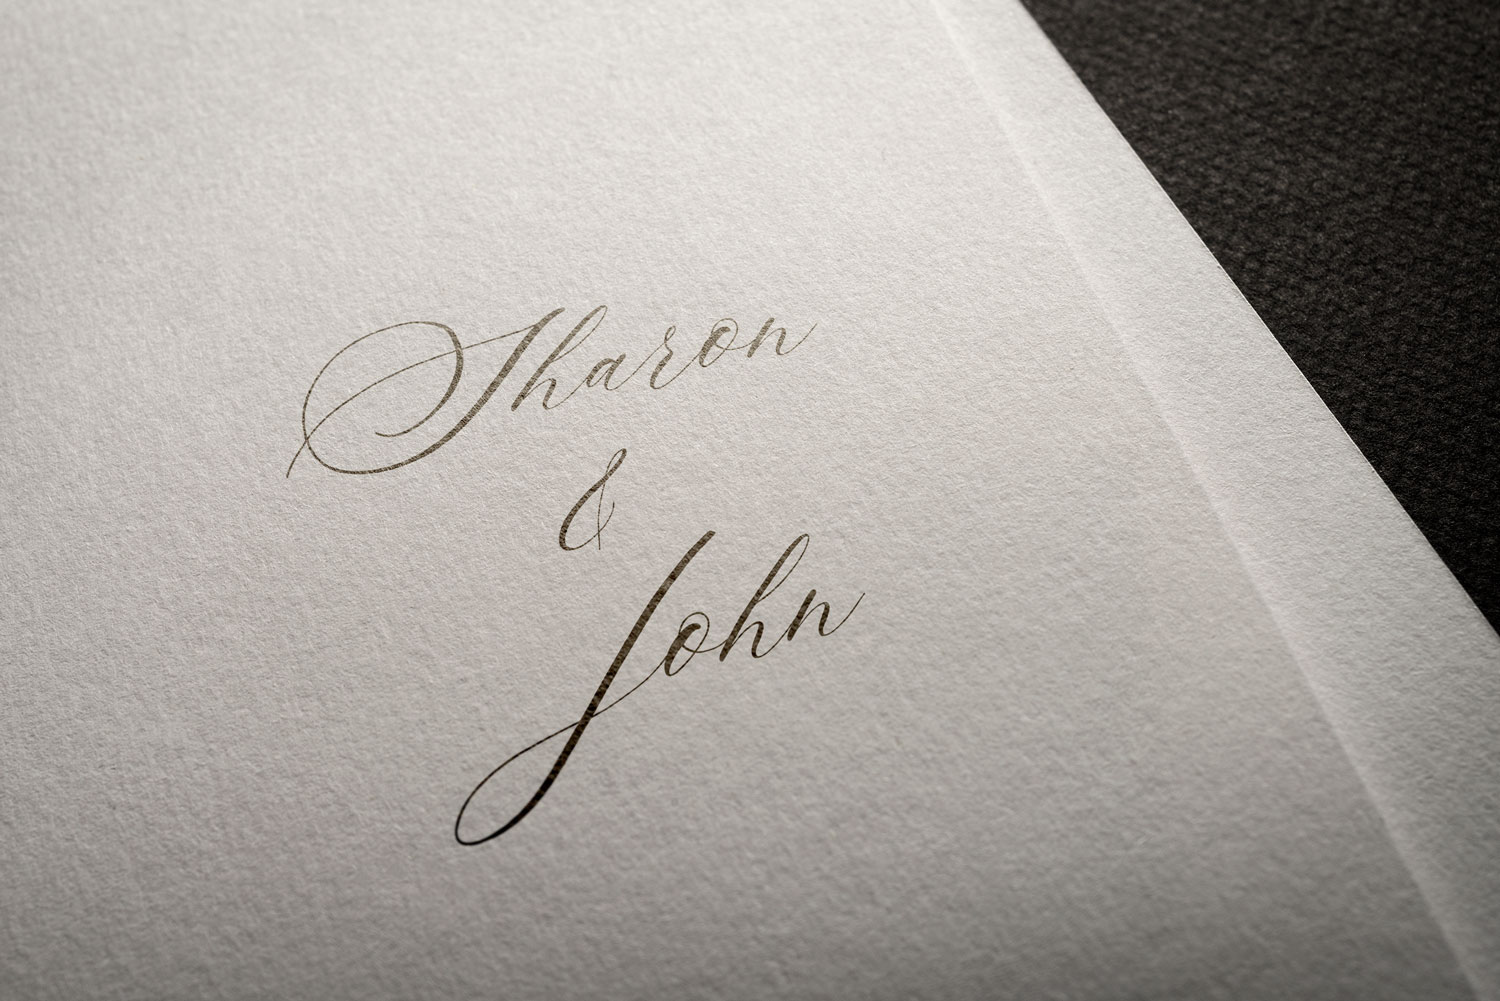 Sharon
&
John